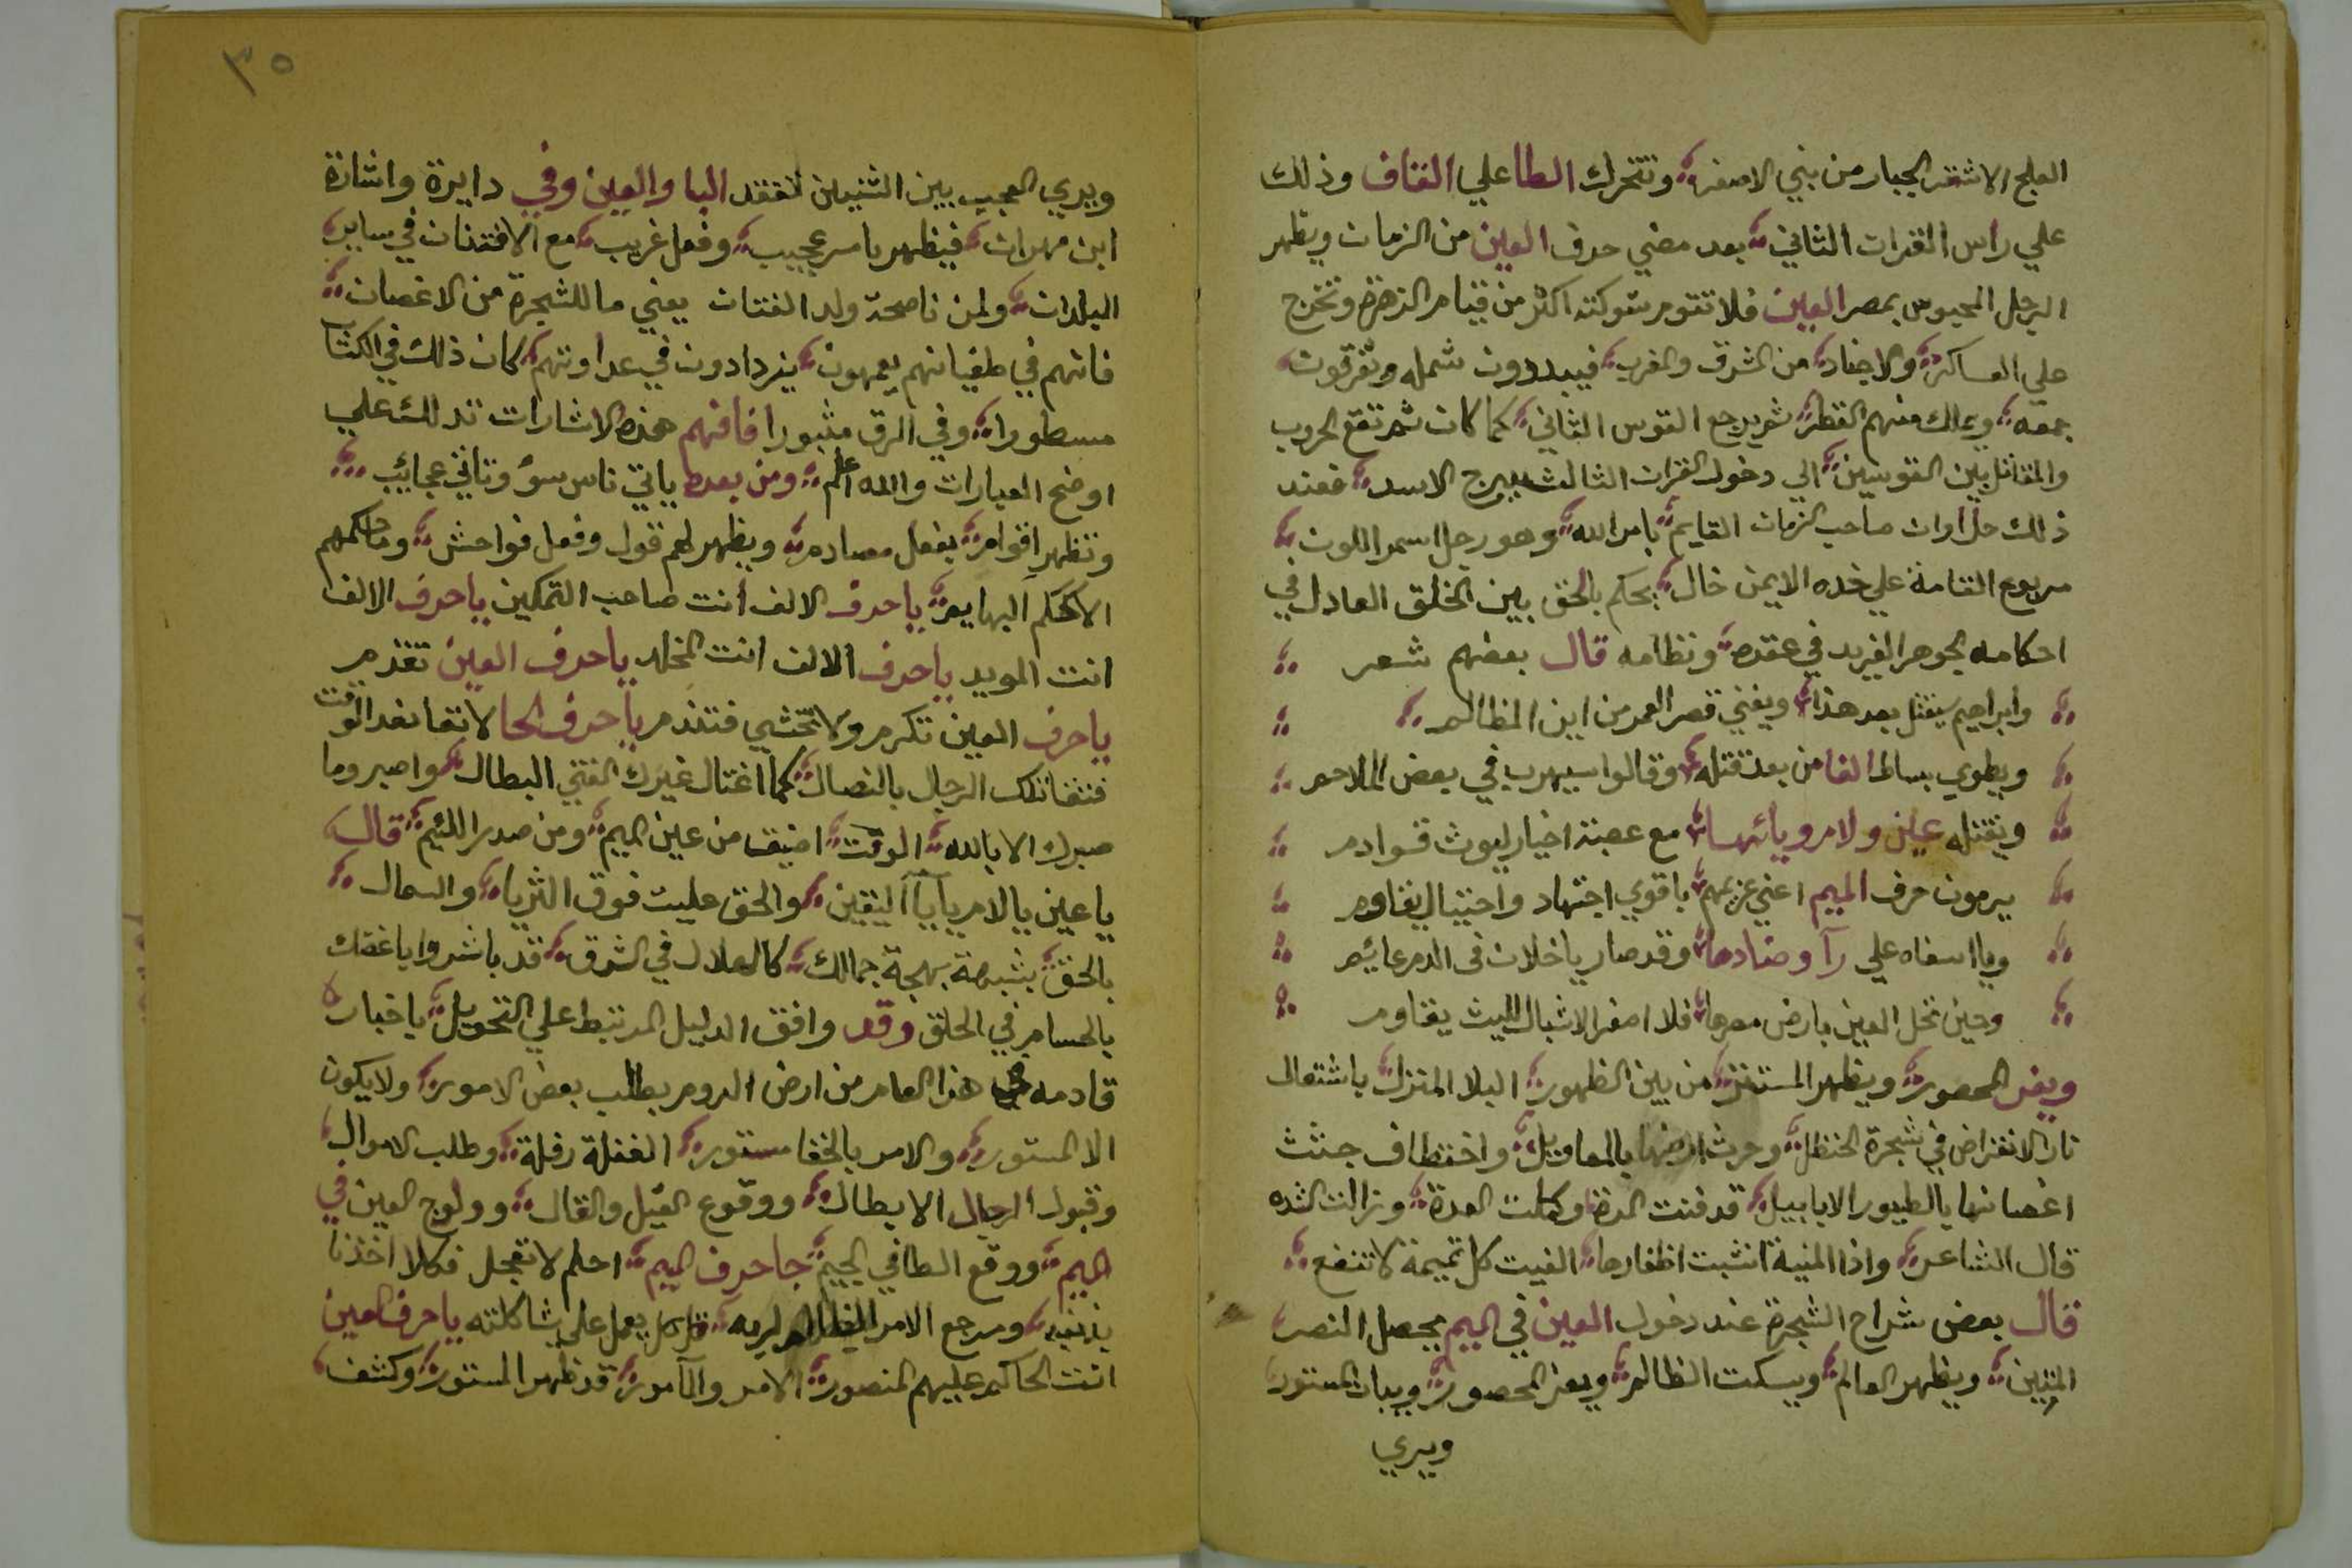 العلج الاشقر الجبار من بني الاصفر وتتحرك الطا علي القاف وذلك
علي راس القرات الثاني بعد مضي حرف العين من الزمان ويظهر
الرجل المحبوس بمصر العين فلا تقوم شوكته اكثر من قيام الزهرة وتخرج
علي العساكر والاجناد من الشرق والغرب فيبددون شمله وتفرقون
جمعه ويملك منهم القطر ثم يرجع القوس الثاني كما كان ثم تقع الحروب
والمقاتل بين القوسين الي دخول القران الثالث ببرج الاسد فعند
ذلك حل اوان صاحب الزمان القايم بامر الله وهو رجل اسمر اللون
مربوع القامة علي خده الايمن خال يحكم بالحق بين الخلق العادل في
احكامه الجوهر الفريد في عقده ونظامه قال بعضهم شعر
وابراهيم يقتل بعد هذا ويفني قصر العمر من اين المظالم
ويطوي بساط الفا من بعد قتله وقالوا سيهرب في بعض الملاحم
ويقتله عين ولام ويائها مع عصبة اخيار ليوث قوادم
يرمون حرف الميم اعني عزيمهم باقوي اجتهاد واحتيال يقاوم
ويا اسفاه علي رآ وضادها وقد صار يا خلان في الدم عائم
وحين تحل العين بارض مصرها فلا اصفر الاشبال لليث يقاوم
ويفر المحصور ويظهر المستقر من بين الظهور البلا المنزل باشتعال
نار الانقراض في شجرة الحنظل وحرث ارضها بالمعاويل واختطاف جثث
اغصانها بالطيور الابابيل قد فنت المدة وكملت العدة وزالت الشده
قال الشاعر واذا المنية انشبت اظفارها الفيت كل تميمة لا تنفع
قال بعض شراح الشجرة عند دخول العين في الميم يحصل النصر
المتين ويظهر العالم ويسكت الظالم ويعز المحصور ويبان المستور
ويري
٣٥
ويري العجيب بين الثنيين لفقد البا والعين وفي دايرة واشارة
ابن مهران فيظهر بامر عجيب وفعل غريب مع الافتنان في ساير
البلدان ولمن ناصحة ولد الفتات يعني ما للشجرة من الاغصان
فانهم في طغيانهم يعمهون يزدادون في عداوتهم كان ذلك في الكتاب
مسطورا وفي الرق مثبورا فافهم هذه الاشارات تدلك علي
اوضح العبارات والله اعلم ومن بعده ياتي ناس سؤ وتاتي عجائب
وتظهر اقوام بفعل مصادم ويظهر لهم قول وفعل فواحش وما حكمهم
الا كحكم البهايم يا حرف الالف انت صاحب التمكين يا حرف الالف
انت المويد يا حرف الالف انت المخلد يا حرف العين تقدم
يا حرف العين تكرم ولا تختشي فتندم يا حرف الحا لا تعاند الوقت
فتقاتلك الرجال بالنصال كما اغتال غيرك الفتي البطال واصبر وما
صبرك الا بالله الوقت اضيق من عين الميم ومن صدر اللئيم قال
يا عين يا لام يا يآ اليقين والحق عليت فوق الثريا والسمال
بالحق بشبهة بهجة جمالك كالهلال في الشرق قد باشروا باغنك
بالحسام في الحلق وقد وافق الدليل المرتبط علي التحويل ياخبار
قادمه في هذا العام من ارض الروم بطلب بعض الامور ولا يكون
الا المستور والامر بالخفا مستور الغفلة رفلة وطلب الاموال
وقبول الرجال الابطال ووقوع القيل والقال وولوج العين في
الميم ووقع الطا في الجيم جا حرف الميم احلم لا تعجل فكلا اخذنا
بذنبه ومرجع الامر لربه قل كل يعمل علي شاكلته يا حرف العين
انت الحاكم عليهم المنصور الامر والمآمور قد ظهر المستور وكشف